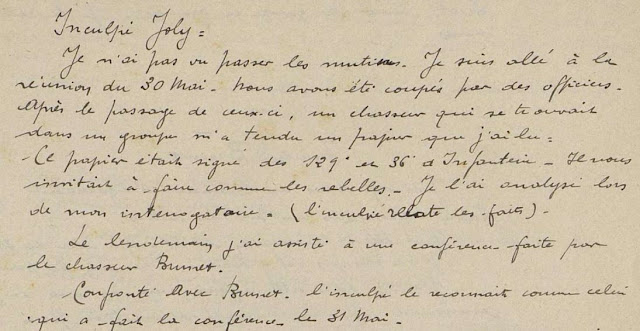 Inculpé Joly =
Je n'ai pas vu passer les mutins. Je suis allé à la
réunion du 30 Mai - Nous avons été coupés par des officiers.
Après le passage de ceux-ci, un chasseur qui se trouvait
dans un groupe m'a tendu un papier que j'ai lu -
- Ce papier était signé des 129e et 36e d'Infanterie - Il nous
invitait à faire comme les rebelles. - Je l'ai analysé lors
de mon interrogatoire. (l'inculpé relate les faits) -
Le lendemain j'ai assisté à une conférence faite par
le chasseur Brunet.
- Confronté avec Brunet. l'inculpé le reconnait comme celui
qui a fait la conférence le 31 Mai -